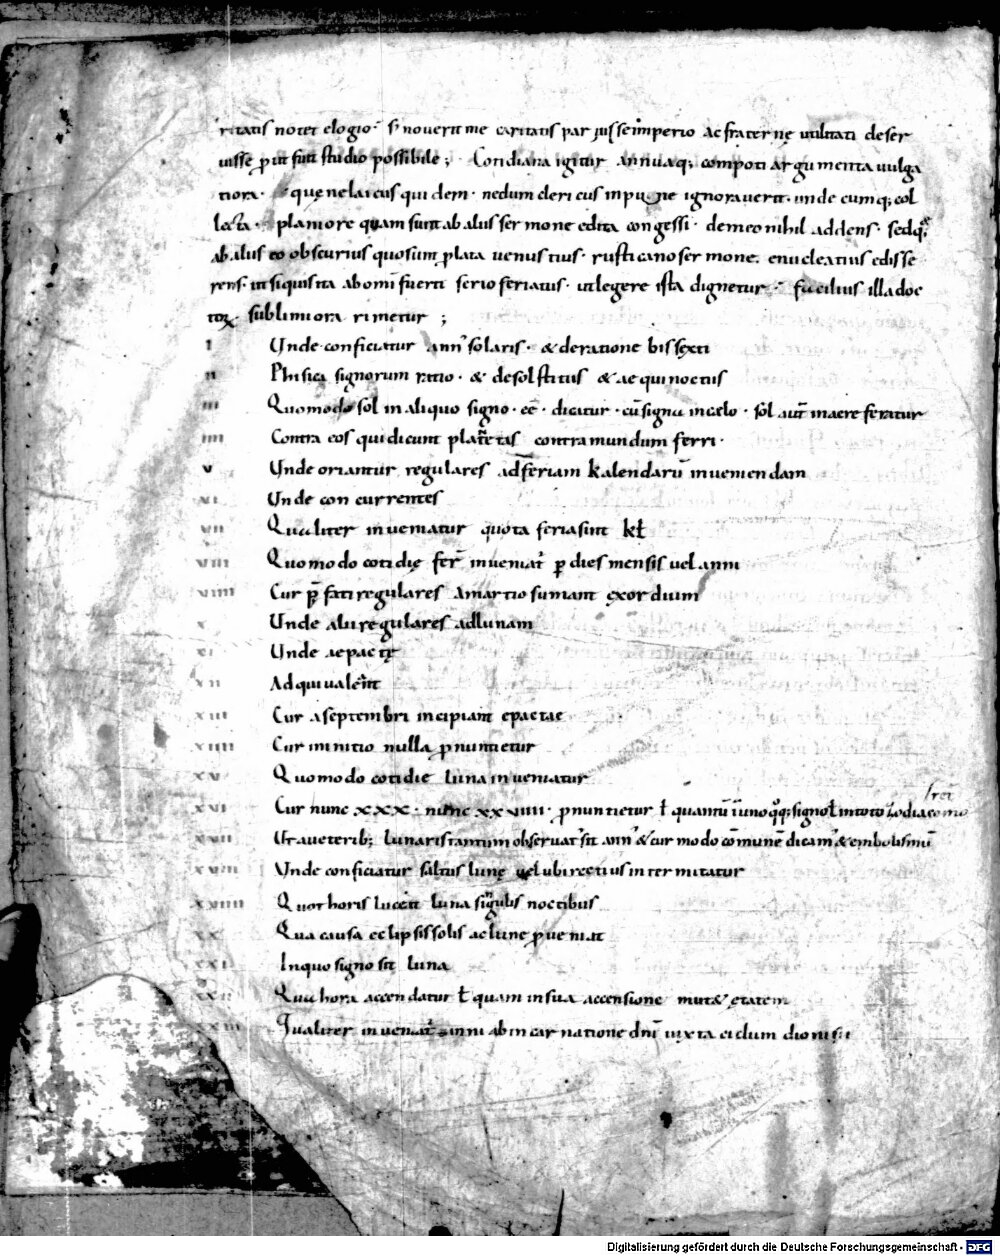 ritatis notet elogio· si noverit me caritatis par uisse imperio ac fraternę utilitati deser
uisse ꝓut fuit studio possibile; Cotidiana igitur annuaq; compoti argumenta uulga
tiora· quę ne laicus quidem· nedum clericus inpune ignorauerit· undecumq; col
lecta· planiore quam sunt ab aliis sermone edita congessi· de meo nihil addens· sed
ab aliis eo obscurius quo sum ꝑlata uenustius· rusticano sermone· enucleatius edisse
rens· ut siquis ita ab omī fuerit serio feriatus· ut legere ista dignetur· facilius illa doc
toꝝ· sublimiora rimetur ;
I Unde conficiatur ann' solaris· & de ratione bissexti
II Phisica signorum ratio· & de solstitiis & aequinoctiis
III Quomodo sol in aliquo signo· eē· dicatur· cū signa in cęlo· sol aut̄ in aere feratur
IIII Contra eos qui dicunt planetas contra mundum ferri·
V Unde oriantur regulares ad feriam kalendarū inueniendam
VI Unde concurrentes
VII Qualiter inueniatur quota feria sint kł
VIII Quomodo cotidię fer̄ inueniat' ꝑ dies mensis uel anni
VIIII Cur p̄fati regulares a martio sumant exordium
X Unde alii regulares ad lunam
XI Unde aepactę
XII Ad qui ualent
XIII Cur a septembri incipiant epactae
XIIII Cur in initio nulla ꝓnuntietur
XV Quomodo cotidie luna inueniatur
XVI Cur nunc XXX· nunc XXVIIII· ꝓnuntietur ł quantū in uno qͦq; signo ł in toto zodiaco mo
ret̄
XVII Ut a ueterib; lunaris tantum obseruat' sit ann' & cur modo cōmunē dicam' & embolismū
XVIII Unde conficiatur saltus lunę uel ubi rectius intermitatur
XVIIII Quot horis luceat luna singulis noctibus
XX Qua causa eclipsis solis ac lune ꝓueniat
XXI In quo signo sit luna
XXII Qua hora accendatur ł quam in sua accensione mutet ętatem
XXIII Qualiter inueniat' anni ab incarnatione dnī iuxta ciclum dionisii
Digitalisierung gefördert durch die Deutsche Forschungsgemeinschaft - DFG